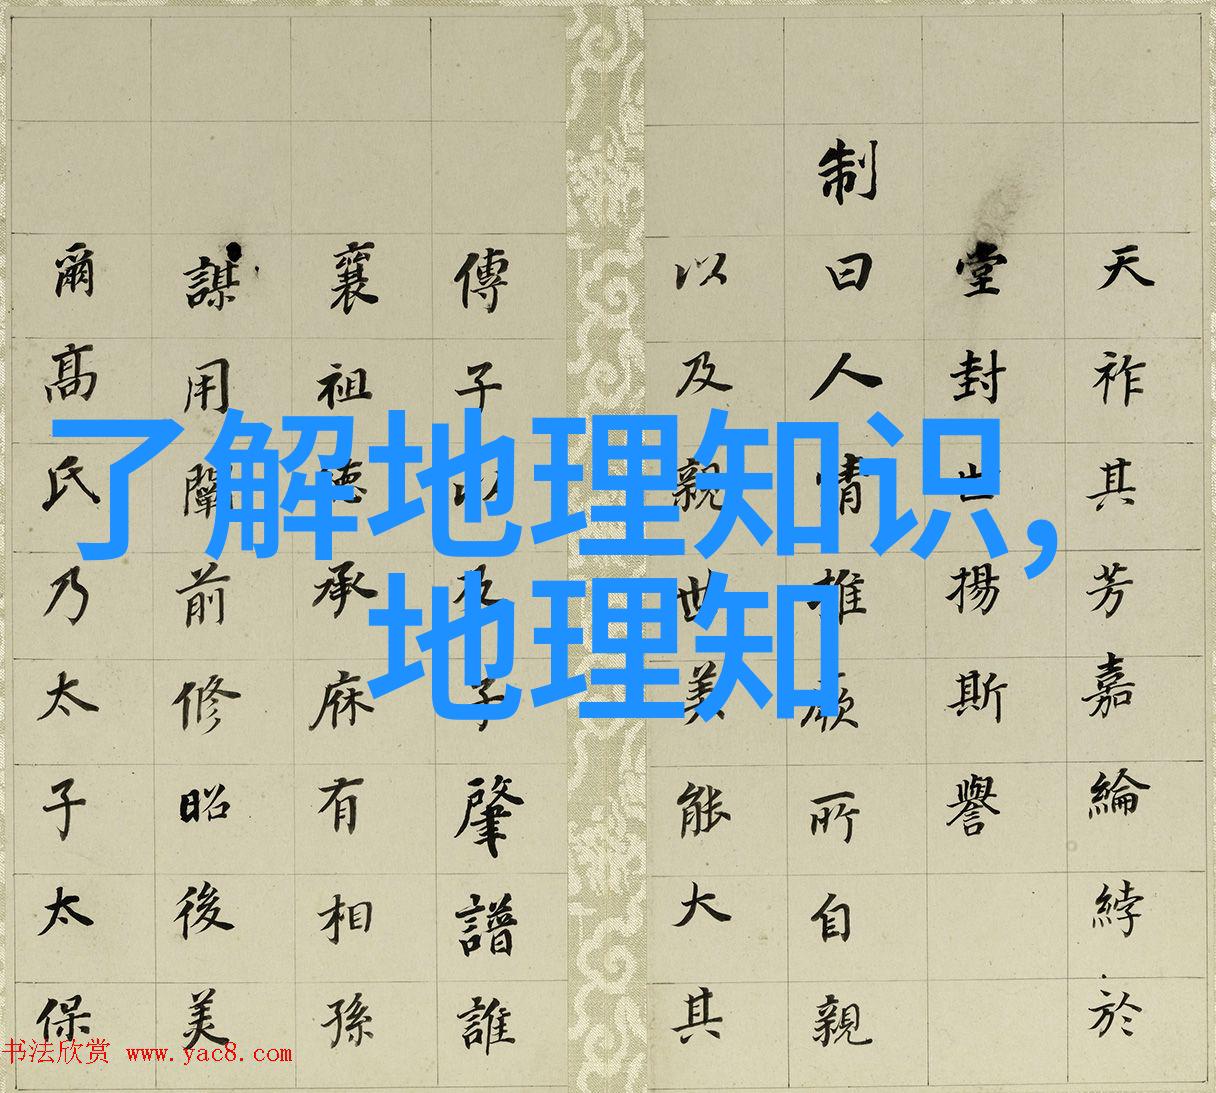 了解地理知识，
地理知
天祚其芳嘉綸綍於
堂封世揚斯譽
制曰人情推願所自親
以及親世美能大其
傳子以及子肇譜誰
襄祖德承庥有相孫
謀用闡前修昭後美
爾高氏乃太子太保
书法欣赏 www.yac8.com